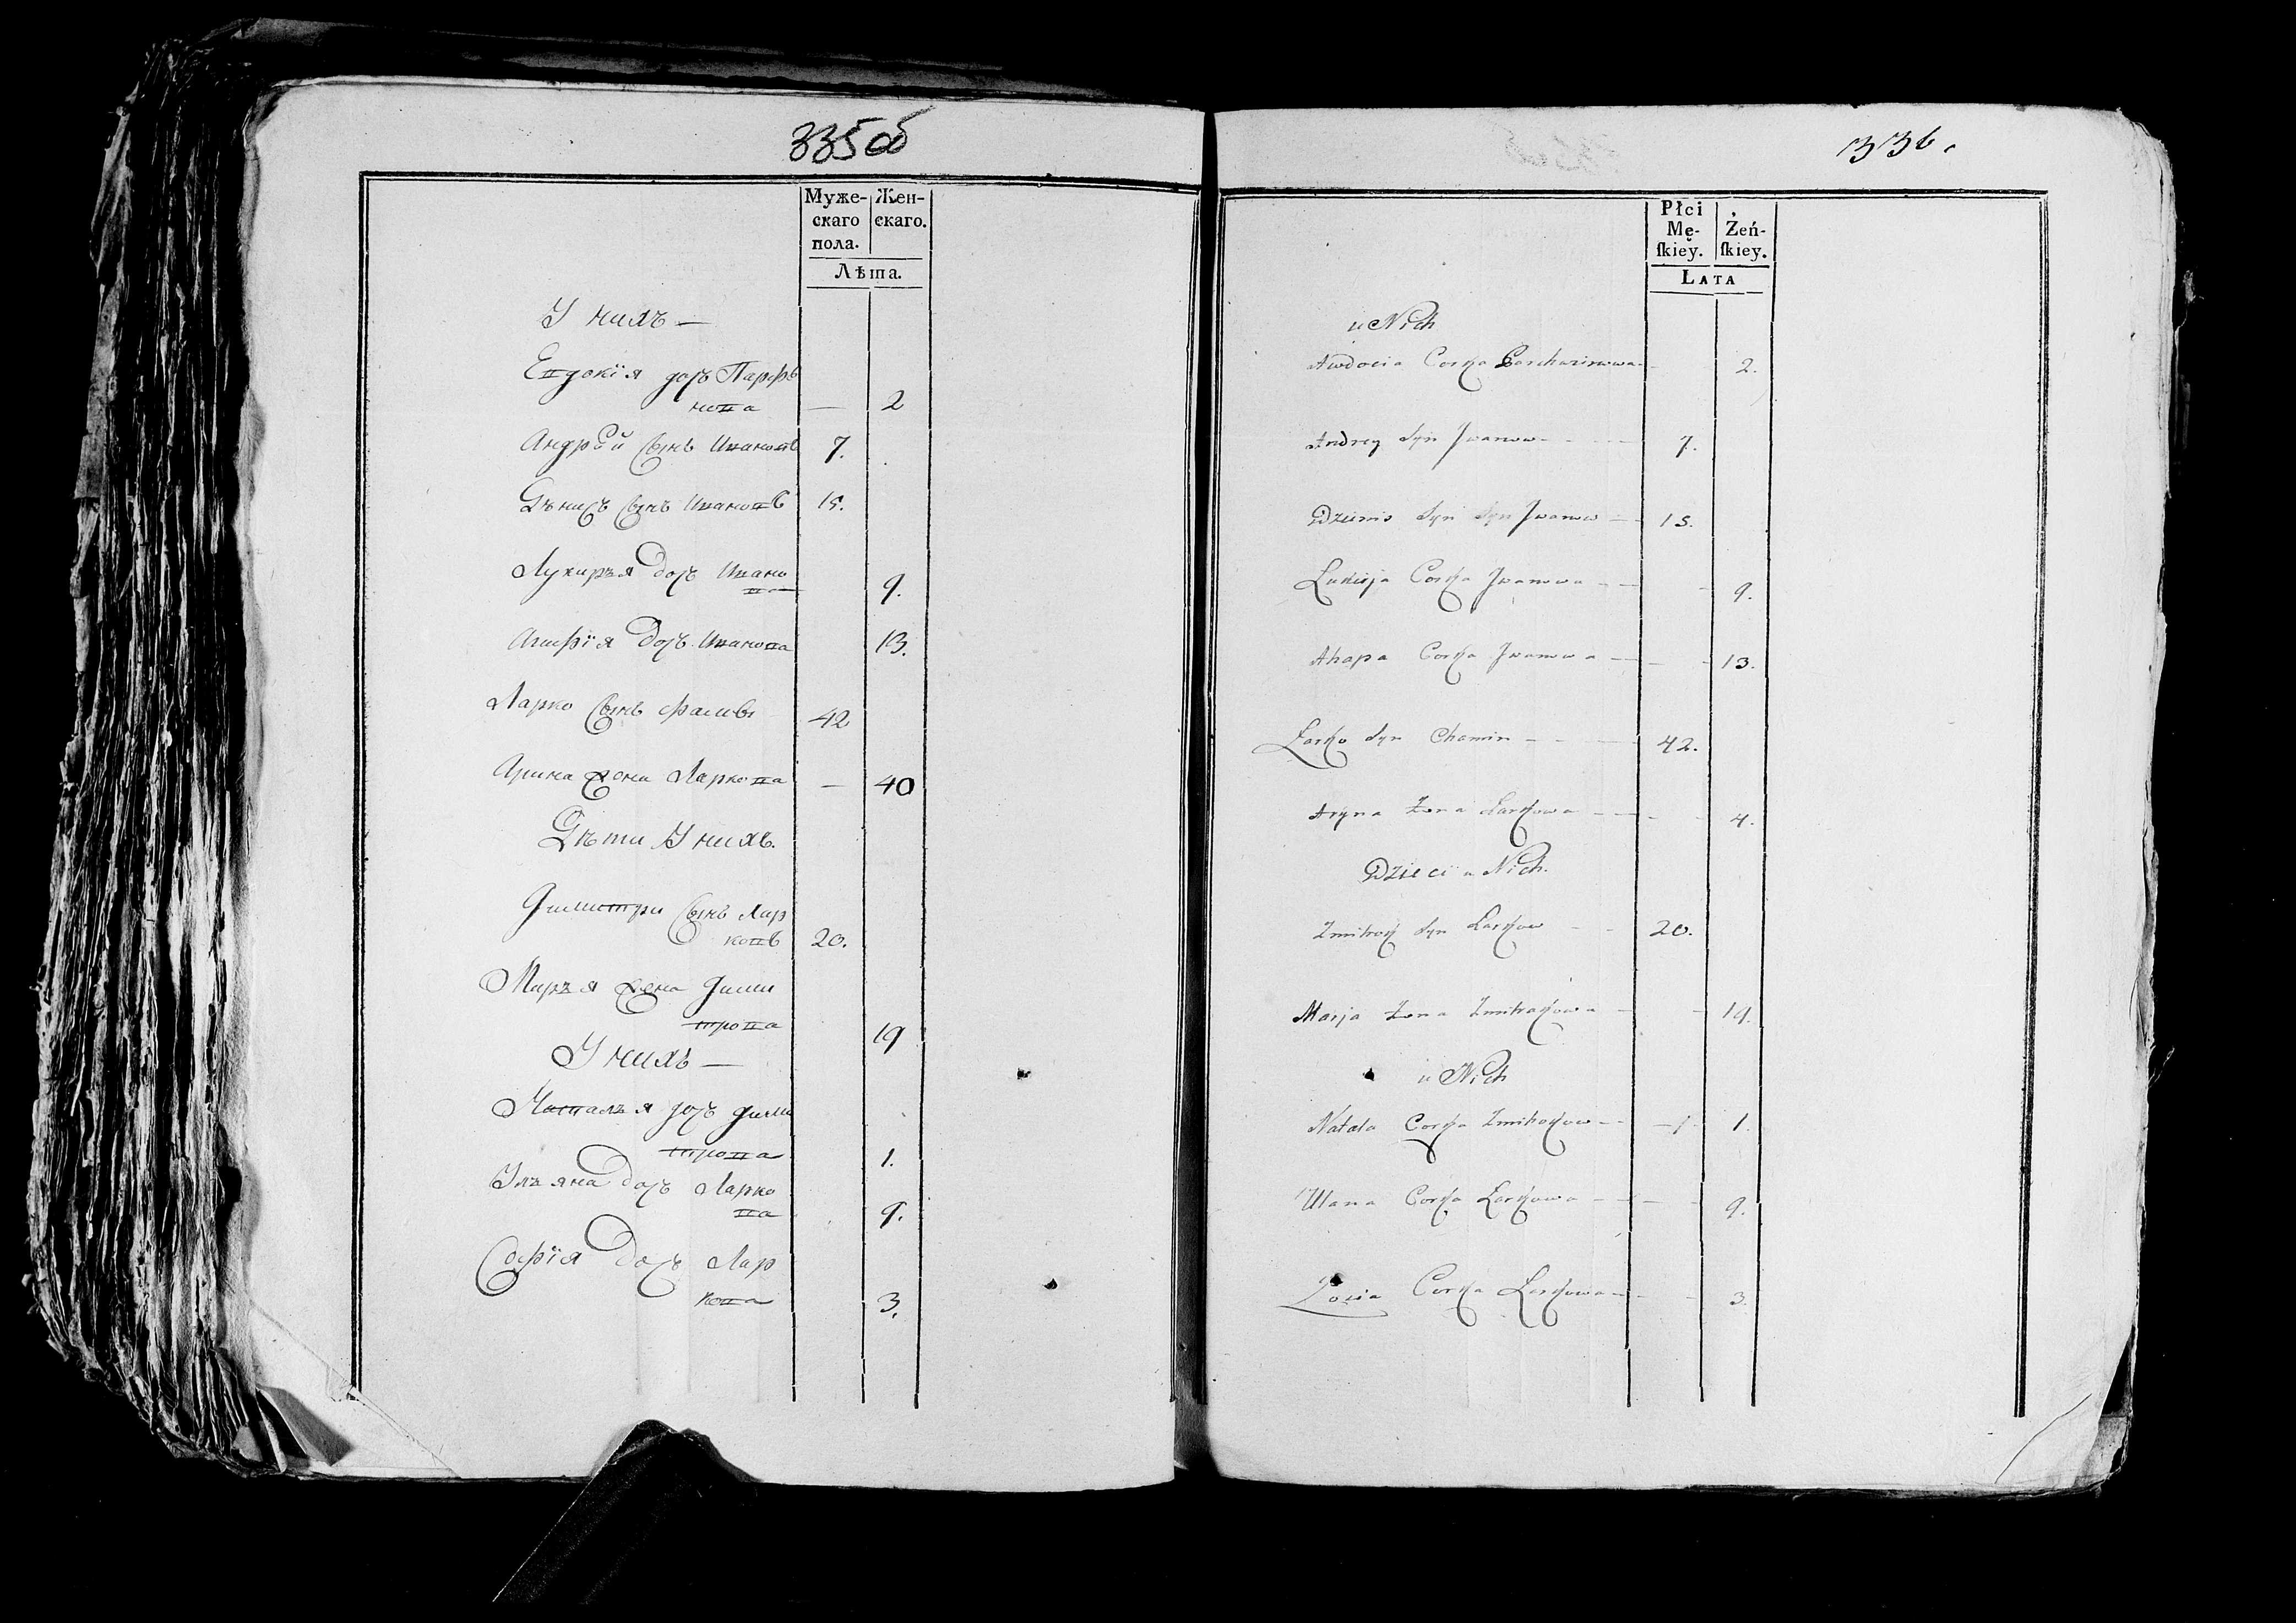 335об
Муже-
скаго
пола.
Жен-
скаго.
Лѣта.
У нихъ —
Евдокія дочъ Парфѣ
нова — 2
Андрѣй сынъ Ивановъ 7.
Дѣнисъ сынъ Ивановъ 15.
Лукирья дочъ Ивано
ва 9.
Агафія дочъ Иванова 13.
Ларко сынъ 42
Арина жена Ларкова — 40
Дѣти У нихъ.
Димитри сынъ Лар
ковъ 20.
Марья жена Дими
трова 19
У нихъ —
Наталья дочъ Дими
трова 1.
Ульяна дочъ Ларко
ва 9.
Софія дочъ Лар
кова 3.
336.
Płci
Mę-
ſkiey.
Żeń-
ſkiey.
LATA
u Nich
Awdocia Corka 2.
Andrey Syn Iwanow 7.
Dzienis Syn Syn Iwanow 15.
Corka Iwanowa 9.
Ahapa Corka Iwanowa 13.
Larko Syn Chomin 42.
Aryna Zona Larkowa 4.
Dzieci u Nich.
Zmitrok Syn Larkow 20.
Marja Zona Zmitrakowa 19.
u Nich
Natala Corka Zmitrokow 1 1.
Ulana Corka Larkowa 9.
Zosia Corka Larkowa 3.